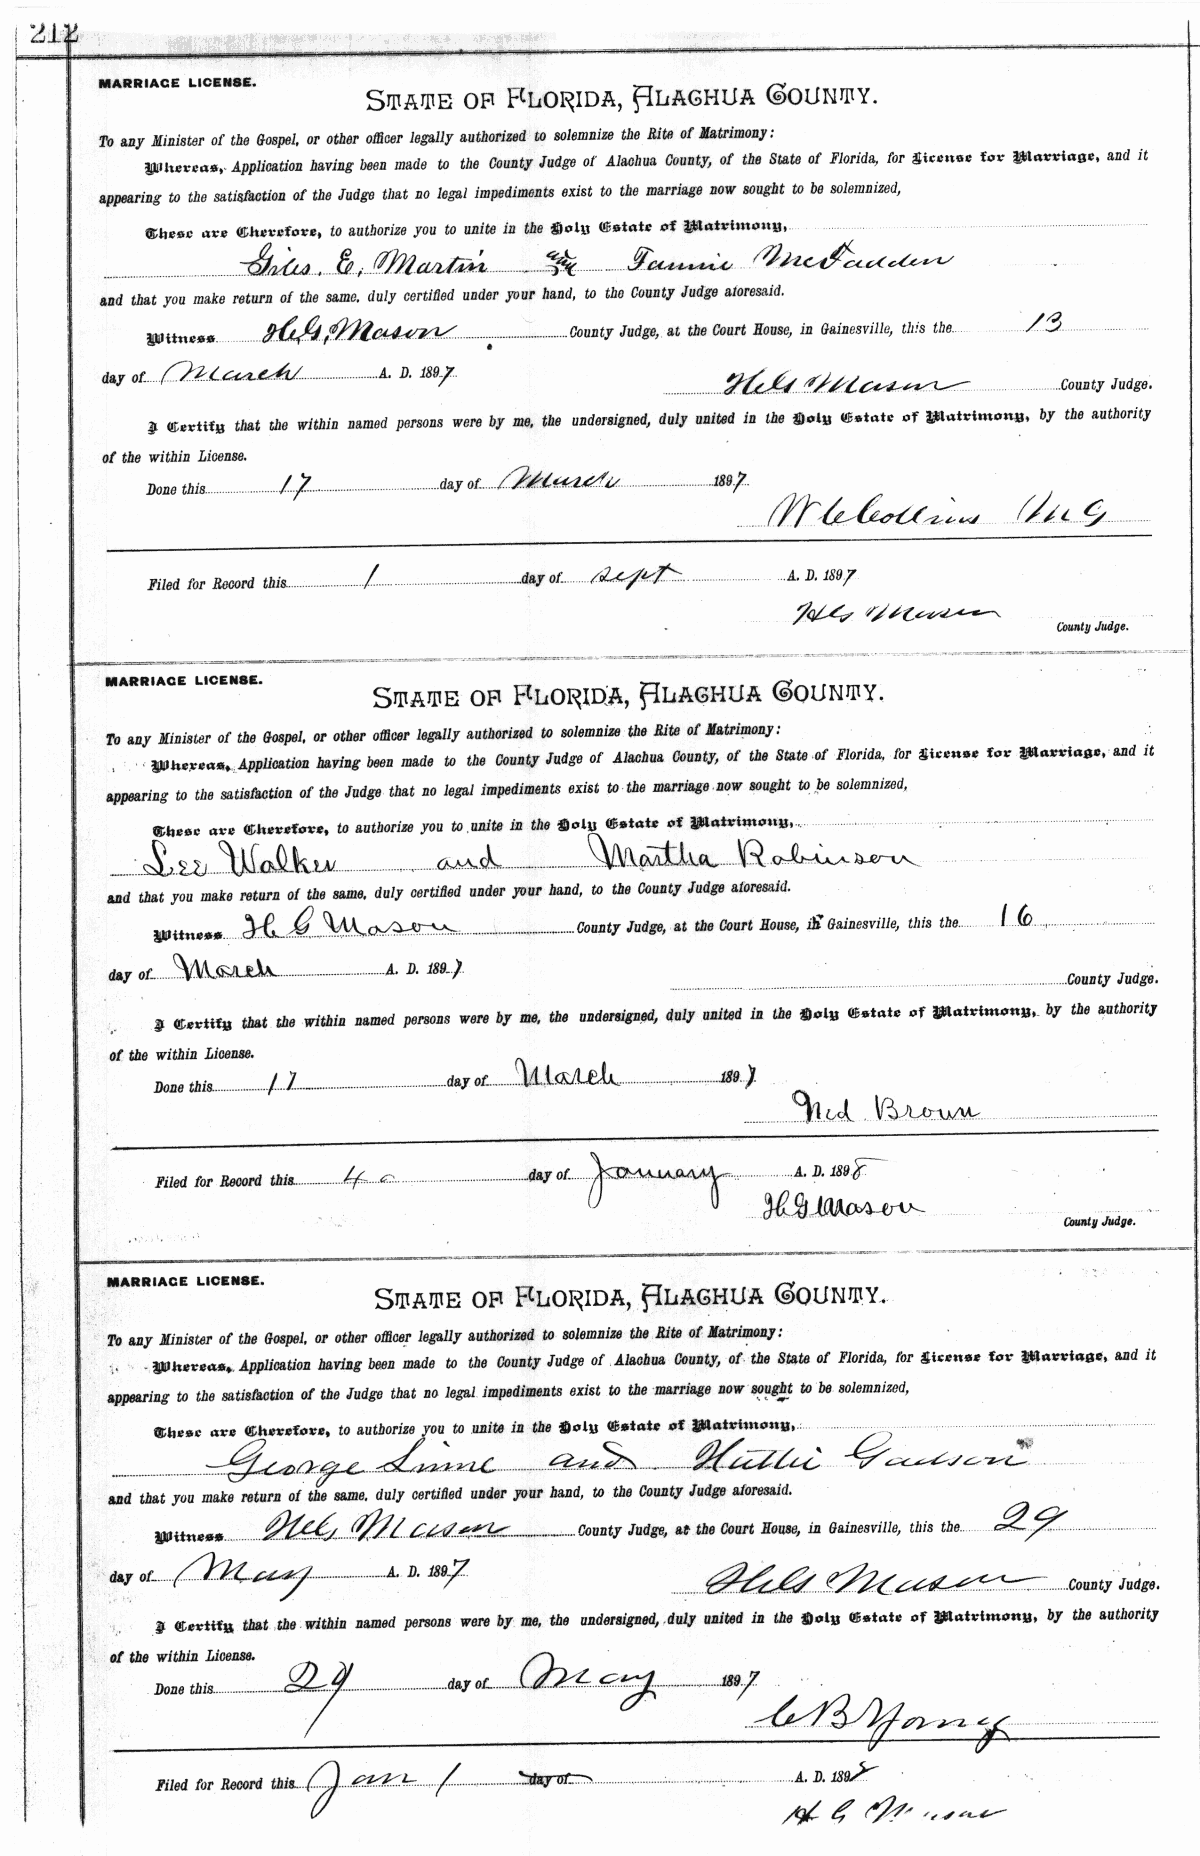 212
MARRIAGE LICENSE.
STATE OF FLORIDA, ALACHUA COUNTY.
To any Minister of the Gospel, or other officer legally authorized to solemnize the Rite of Matrimony:
Whereas, Application having been made to the County Judge of Alachua County, of the State of Florida, for License for Marriage, and it
appearing to the satisfaction of the Judge that no legal impediments exist to the marriage now sought to be solemnized,
These are Therefore, to authorize you to unite in the Holy Estate of Matrimony,
Giles. E, Martin and Fannie McFadden
and that you make return of the same, duly certified under your hand, to the County Judge aforesaid.
Witness H,G,Mason County Judge, at the Court House, in Gainesville, this the 13
day of March A. D. 1897
HG Mason County Judge.
I Certify that the within named persons were by me, the undersigned, duly united in the Holy Estate of Matrimony, by the authority
of the within License.
Done this 17 day of March 1897
W C Collins M G
Filed for Record this 1 day of sept A. D. 1897
HG Mason
County Judge.
MARRIAGE LICENSE.
STATE OF FLORIDA, ALACHUA COUNTY.
To any Minister of the Gospel, or other officer legally authorized to solemnize the Rite of Matrimony:
Whereas, Application having been made to the County Judge of Alachua County, of the State of Florida, for License for Marriage, and it
appearing to the satisfaction of the Judge that no legal impediments exist to the marriage now sought to be solemnized,
These are Therefore, to authorize you to unite in the Holy Estate of Matrimony,
Lee Walker and Martha Robinson
and that you make return of the same, duly certified under your hand, to the County Judge aforesaid.
Witness H G Mason County Judge, at the Court House, in Gainesville, this the 16
day of March A. D. 1897
County Judge.
I Certify that the within named persons were by me, the undersigned, duly united in the Holy Estate of Matrimony, by the authority
of the within License.
Done this 17 day of March 1897
Ned Brown
Filed for Record this 4 day of January A. D. 1898
H G Mason
County Judge.
MARRIAGE LICENSE.
STATE OF FLORIDA, ALACHUA COUNTY.
To any Minister of the Gospel, or other officer legally authorized to solemnize the Rite of Matrimony:
Whereas, Application having been made to the County Judge of Alachua County, of the State of Florida, for License for Marriage, and it
appearing to the satisfaction of the Judge that no legal impediments exist to the marriage now sought to be solemnized,
These are Therefore, to authorize you to unite in the Holy Estate of Matrimony,
George and Hattie Gadson
and that you make return of the same, duly certified under your hand, to the County Judge aforesaid.
Witness HG, Mason County Judge, at the Court House, in Gainesville, this the 29
day of May A. D. 1897
HG Mason County Judge.
I Certify that the within named persons were by me, the undersigned, duly united in the Holy Estate of Matrimony, by the authority
of the within License.
Done this 29 day of May 1897
C B Young
Filed for Record this Jan 1 day of A. D. 1898
H G Mason